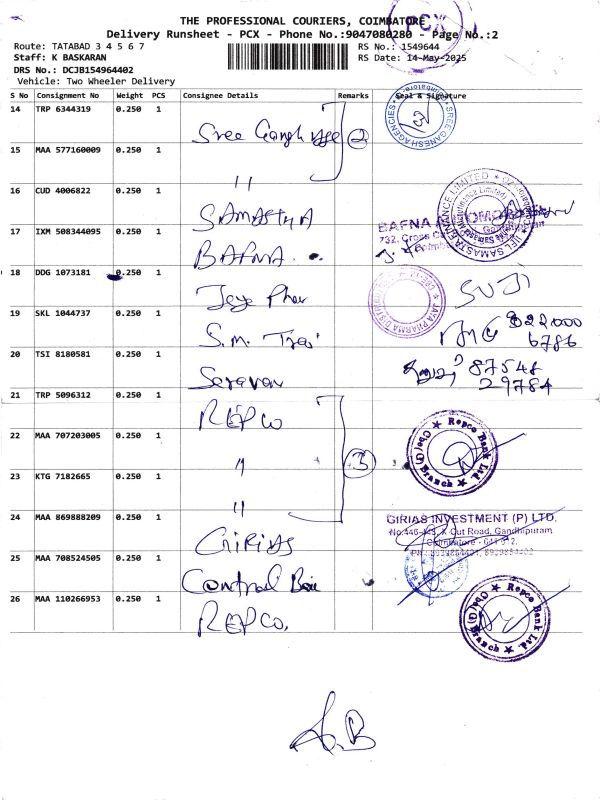 THE PROFESSIONAL COURIERS, COIMBATORE
PCX
Delivery Runsheet - PCX - Phone No.:9047080280 - Page No.:2
Route: TATABAD 3 4 5 6 7
RS No.: 1549644
Staff: K BASKARAN
RS Date: 14-May-2025
DRS No.: DCJB154964402
Vehicle: Two Wheeler Delivery
S No Consignment No Weight PCS Consignee Details Remarks Seal & Signature
14 TRP 6344319 0.250 1 Sree Gangh 2
SREE GANESH AGENCIES
15 MAA 577160009 0.250 1 "
16 CUD 4006822 0.250 1 SAMASTHA
IIFL SAMASTA FINANCE LIMITED
17 IXM 508344095 0.250 1 BAFNA
BAFNA
732, Cross
18 DDG 1073181 0.250 1 Jeye Phar SUJI
JAYA PHARMA DISTRI
19 SKL 1044737 0.250 1 S.m. 22000
6786
20 TSI 8180581 0.250 1 Saravan 87548
29784
21 TRP 5096312 0.250 1 REPCO
22 MAA 707203005 0.250 1 " 3
Repco Bank Ltd Branch
23 KTG 7182665 0.250 1 "
24 MAA 869888209 0.250 1 GIRIAS
GIRIAS INVESTMENT (P) LTD.
No:446-448, X Cut Road, Gandhipuram
Coimbatore - 641 012.
25 MAA 708524505 0.250 1 Central
26 MAA 110266953 0.250 1 REPCO.
Repco Bank Ltd Branch